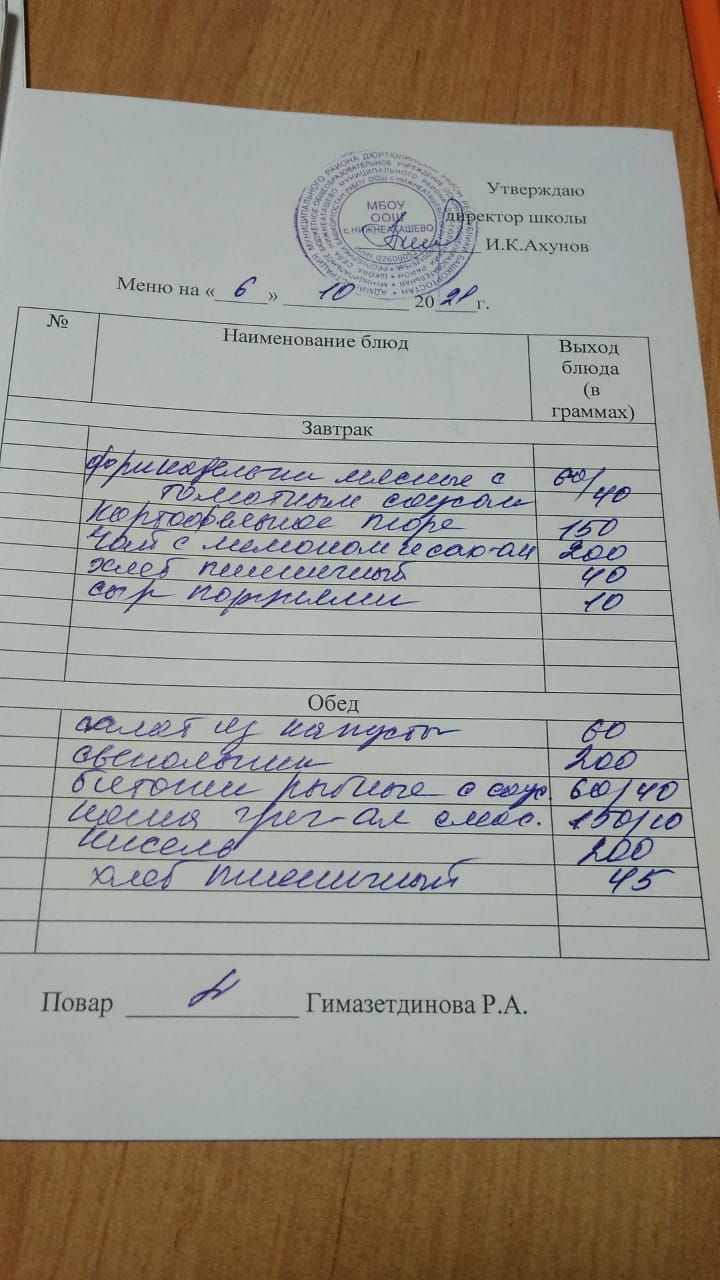 МБОУ
ООШ
с.НИЖНЕАТАШЕВО
Утверждаю
директор школы
И.К.Ахунов
Меню на « 6 » 10 2021 г.
№ Наименование блюд Выход
блюда
(в
граммах)
Завтрак
фрикадельки мясные с 60/40
томатным соусом
картофельное пюре 150
чай с лимоном и сах-ом 200
хлеб пшеничный 40
сыр порциями 10
Обед
салат из капусты 60
свекольник 200
биточки рыбные с соус. 60/40
каша греч-ая с мас. 150/10
кисель 200
хлеб пшеничный 45
Повар Гимазетдинова Р.А.